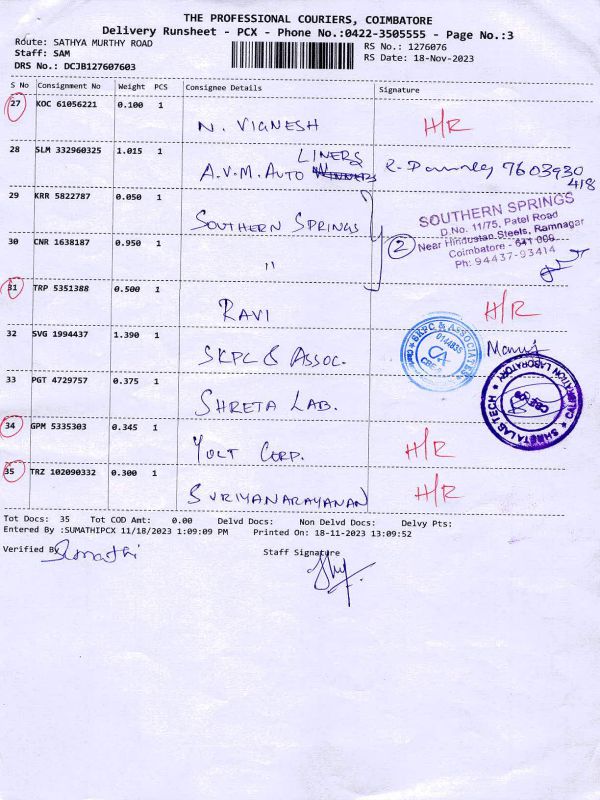 THE PROFESSIONAL COURIERS, COIMBATORE
Delivery Runsheet - PCX - Phone No.:0422-3505555 - Page No.:3
Route: SATHYA MURTHY ROAD
RS No.: 1276076
Staff: SAM
RS Date: 18-Nov-2023
DRS No.: DCJB127607603
S No Consignment No Weight PCS Consignee Details Signature
27 KOC 61056221 0.100 1
N. VIGNESH H/R
28 SLM 332960325 1.015 1
A.V.M. AUTO LINERS 7603930
418
29 KRR 5822787 0.050 1
SOUTHERN SPRINGS
SOUTHERN SPRINGS
D.No. 11/75, Patel Road
Near Hindustan Steels, Ramnagar
Coimbatore - 641 009
Ph: 94437-93414
2
30 CNR 1638187 0.950 1
"
31 TRP 5351388 0.500 1
RAVI H/R
32 SVG 1994437 1.390 1
SKPC & ASSOC.
SKPC & ASSOCIATES
014483S
CA
CBE
33 PGT 4729757 0.375 1
SHRETA LAB.
SHRETA LAB TECH
CALIBRATION LABORATORY
34 GPM 5335303 0.345 1
YOLT CORP. H/R
35 TRZ 102090332 0.300 1
SURIYANARAYANAN H/R
Tot Docs: 35 Tot COD Amt: 0.00 Delvd Docs: Non Delvd Docs: Delvy Pts:
Entered By :SUMATHIPCX 11/18/2023 1:09:09 PM Printed On: 18-11-2023 13:09:52
Verified By Sumathi
Staff Signature